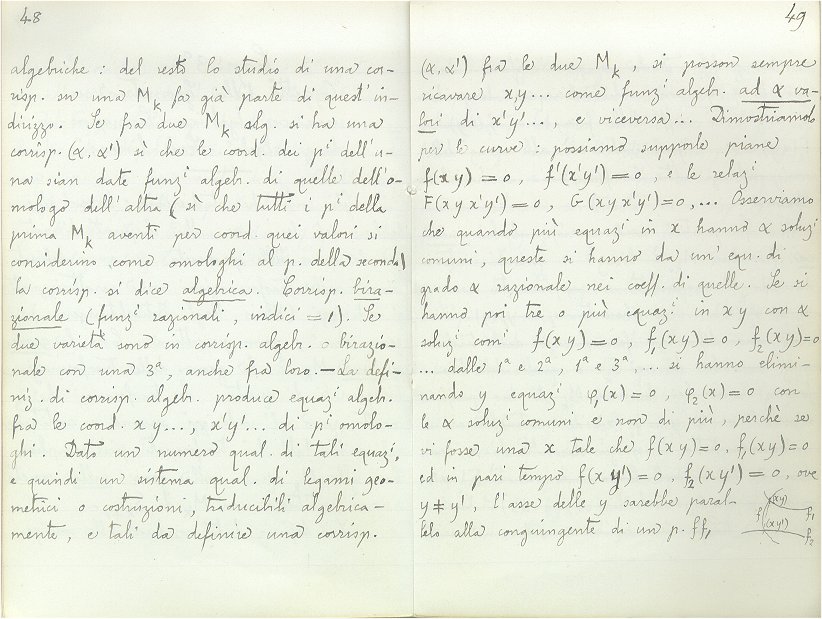 48
algebriche : del resto lo studio di una cor-
risp. su una M_k fa già parte di quest'in-
dirizzo. Se fra due M_k alg. si ha una
corrisp. (α, α') sì che le coord. dei pⁱ dell'u-
na sian date funzⁱ algeb. di quelle dell'o-
mologo dell'altra (sì che tutti i pⁱ della
prima M_k aventi per coord. quei valori si
considerino come omologhi al p. della seconda)
la corrisp. si dice algebrica. Corrisp. bira-
zionale (funzⁱ razionali, indici = 1). Se
due varietà sono in corrisp. algebr. o birazio-
nale con una 3ª, anche fra loro. — La defi-
niz. di corrisp. algebr. produce equazⁱ algebr.
fra le coord. x y..., x'y'... di pⁱ omolo-
ghi. Dato un numero qual. di tali equazⁱ,
e quindi un sistema qual. di legami geo-
metrici o costruzioni, traducibili algebrica-
mente, e tali da definire una corrisp.
49
(α, α') fra le due M_k, si posson sempre
ricavare x, y... come funzⁱ algebr. ad α va-
lori di x'y'..., e viceversa... Dimostriamolo
per le curve : possiamo supporle piane
f(x y) = 0, f'(x'y') = 0, e le relazⁱ
F(x y x'y') = 0, G(x y x'y') = 0, ... Osserviamo
che quando più equazⁱ in x hanno α soluzⁱ
comuni, queste si hanno da un'equ. di
grado α razionale nei coeff. di quelle. Se si
hanno poi tre o più equazⁱ in x y con α
soluzⁱ comⁱ f(x y) = 0, f₁(x y) = 0, f₂(x y) = 0
... dalle 1ª e 2ª, 1ª e 3ª, ... si hanno elimi-
nando y equazⁱ φ₁(x) = 0, φ₂(x) = 0 con
le α soluzⁱ comuni e non di più, perchè se
vi fosse una x tale che f(x y) = 0, f₁(x y) = 0
ed in pari tempo f(x y') = 0, f₂(x y') = 0, ove
y ≠ y', l'asse delle y sarebbe paral-
lelo alla congiungente di un p. ff₁
(xy)
f f₁
(xy')
f₂